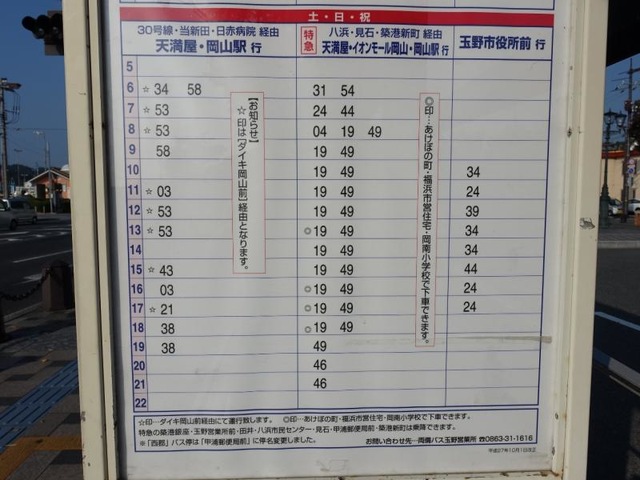 土・日・祝
30号線・当新田・日赤病院 経由
天満屋・岡山駅 行
特急
八浜・見石・築港新町 経由
天満屋・イオンモール岡山・岡山駅 行
玉野市役所前 行
5
6 ☆34 58 31 54
7 ☆53 24 44
8 ☆53 04 19 49
9 58 19 49
10 19 49 34
11 ☆03 19 49 24
12 ☆53 19 49 39
13 ☆53 ◎19 49 34
14 19 49 34
15 ☆43 19 49 44
16 03 ◎19 49 24
17 ☆21 ◎19 49 24
18 38 ◎19 49
19 38 49
20 46
21 46
22
【お知らせ】
☆印は【ダイキ岡山前】経由となります。
◎印…あけぼの町・福浜市営住宅・岡南小学校で下車できます。
☆印…ダイキ岡山前経由にて運行致します。 ◎印…あけぼの町・福浜市営住宅・岡南小学校で下車できます。
特急の築港銀座・玉野営業所前・田井・八浜市民センター・見石・甲浦郵便局前・築港新町は乗降できます。
※「西郡」バス停は「甲浦郵便局前」に停名変更しました。
お問い合わせ先…両備バス玉野営業所 ☎0863-31-1616
平成27年10月1日改正